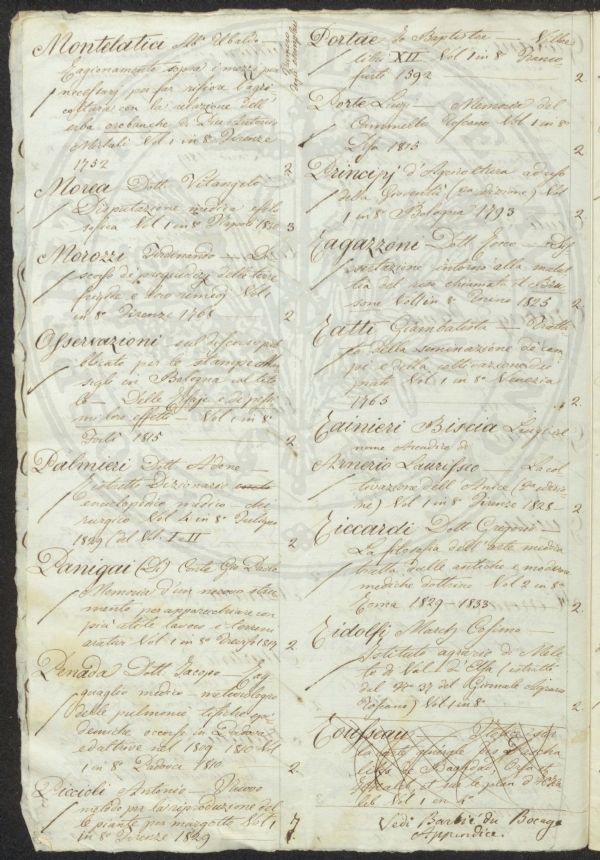 Montelatici Ab. Ubaldo
Ragionamento sopra i mezzi più
necessarj per far rifiorire l'agri
coltura con la relazione dell'
erba orobanche di Pier Antonio
Micheli Vol 1 in 8° Firenze
1752 2
Morea Dott. Vitangelo —
Disputazione medica filo
sofica Vol 1 in 8° Napoli 3
Morozzi Ferdinando — Di
scorso di pregiudizj delle terre
fredde e loro rimedj Vol 1
in 8° Firenze 1768 — 2
Osservazioni sul discorso pub
blicato per le stampe
in Bologna col tito
lo — Delle Risaje e dei pessi
mi loro effetti — Vol 1 in 8°
Forlì 1815 2
Palmieri Dott. Adone —
Dizionario
enciclopedico medico — chi
rurgico Vol 4 in 8° Bologna
1829 (del Vol. I-II 2
Panigai (Di) Conte Gio Dario
Memoria d'un nuovo stru
mento per apparecchiare con
più utile lavoro i terreni
aratorj Vol 1 in 8° 2
Penada Dott. Jacopo — Rag
guaglio medico — meteorologico
delle pulmonie epide
miche occorse in Padova
nel 1809 1810 Vol
1 in 8° Padova 1810 2.
Piccioli Antonio — Nuovo
metodo per la riproduzione del
le piante per margotte Vol 1
in 8° Firenze 1829
Numero
degli esemplari
Portae Jo Baptistae — Villae
libri XII Vol 1 in 8° Franco
furti 1592 2
Porte Luigi — Memoria del
Vol 1 in 8°
Pisa 1815 2.
Principj d'Agricoltura ad uso
della Gioventù Vol
1 in 8° Bologna 1793 2
Ragazzoni Dott. Rocco — Dis
sertazione intorno alla malat
tia del riso chiamata il Bru
sone Vol 1 in 8° Torino 1825 2
Ratti Giambatista — Tratta
to della seminazione de' cam
pi e della coltivazione de'
prati Vol 1 in 8° Venezia
1765 2.
Rainieri Biscia Luigi col
nome Arcadico di
Armerio Laurisseo — La col
tivazione dell' Anice (2ª edizio
ne) Vol 1 in 8° Firenze 1828 — 2
Riccardi Dott Gregorio
La filosofia dell'arte medica
tratta dalle antiche e moderne
mediche dottrine Vol 2 in 8°
Roma 1829 — 1833 2.
Ridolfi March Cosimo —
Istituto agrario di Mele
to di Val d'Elsa (estratto
del N° 37 del Giornale Agrario
Toscano) Vol 1 in 8° 2.
Rousseau
la carte générale
de Bagdad
et sur le plan d'Alep
Vol 1 in 4°
Vedi Barbié du Bocage
Appendice.